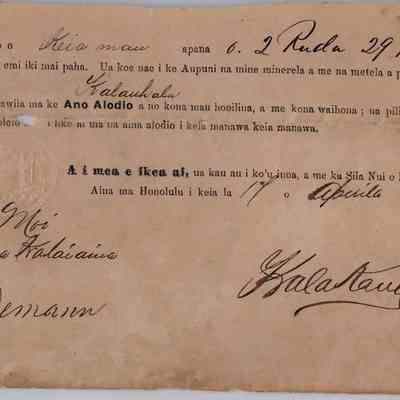 o Keia mau apana 6. 2 Ruda 29
emi iki mai paha. Ua koe nae i ke Aupuni na mine minerela a me na metela a p
Kalauhala
awila ma ke Ano Alodio a no kona mau hooilina, a me kona waihona; na pili
i like ai ma na aina alodio i keia manawa keia manawa.
A i mea e ikea ai, ua kau au i ko'u inoa, a me ka Sila Nui o
Aina ma Honolulu i keia la 17 o Aperila
Moi
Kalaiaina
Kalakau
emann